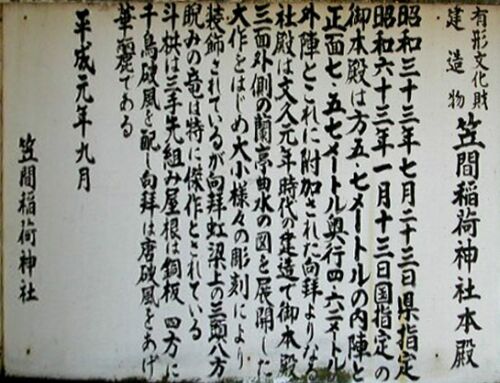 有形文化財
建造物
笠間稲荷神社本殿
昭和三十三年七月二十三日県指定
昭和六十三年一月十三日国指定の
御本殿は方五・七メートルの内陣と
正面七・五七メートル奥行四・六二メートルの
外陣とこれに附加された向拝よりなる
社殿は文久元年時代の建造で御本殿
三面外側の蘭亭曲水の図を展開した
大作をはじめ大小様々の彫刻により
装飾されているが向拝虹梁上の三頭八方
睨みの竜は特に傑作とされている
斗栱は三手先組み屋根は銅板 四方に
千鳥破風を配し向拝は唐破風をあげ
華麗である
平成元年九月
笠間稲荷神社